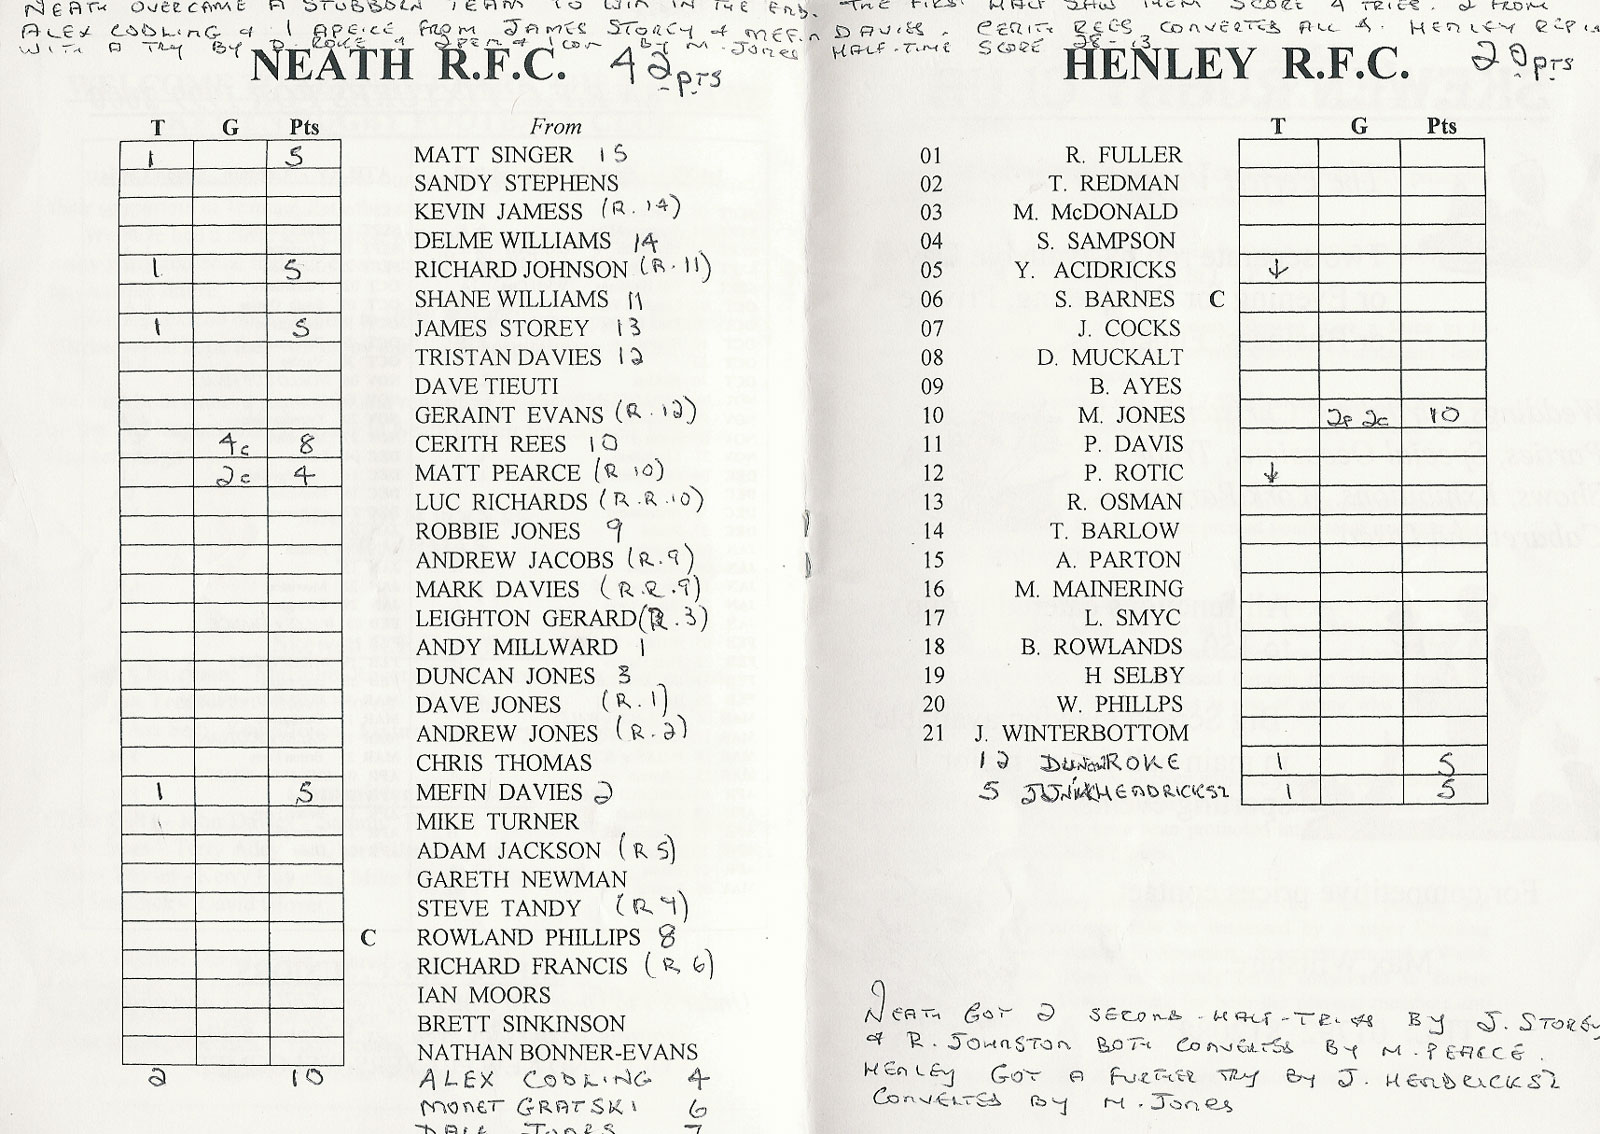 NEATH OVERCAME A STUBBORN TEAM TO WIN IN THE END. THE FIRST HALF SAW THEM SCORE 4 TRIES. 2 FROM
ALEX CODLING & 1 APEICE FROM JAMES STOREY & MEFIN DAVIES. CERITH REES CONVERTED ALL 4. HENLEY
WITH A TRY BY D. ROKE & 2PEN & 1CON BY M. JONES HALF-TIME SCORE 28-13
NEATH R.F.C. 42pts
T G Pts From
1 5 MATT SINGER 15
SANDY STEPHENS
KEVIN JAMESS (R.14)
DELME WILLIAMS 14
1 5 RICHARD JOHNSON (R.11)
SHANE WILLIAMS 11
1 5 JAMES STOREY 13
TRISTAN DAVIES 12
DAVE TIEUTI
GERAINT EVANS (R.12)
4c 8 CERITH REES 10
2c 4 MATT PEARCE (R 10)
LUC RICHARDS (R.R.10)
ROBBIE JONES 9
ANDREW JACOBS (R.9)
MARK DAVIES (R.R.9)
LEIGHTON GERARD (R.3)
ANDY MILLWARD 1
DUNCAN JONES 3
DAVE JONES (R.1)
ANDREW JONES (R.2)
CHRIS THOMAS
1 5 MEFIN DAVIES 2
MIKE TURNER
ADAM JACKSON (R 5)
GARETH NEWMAN
STEVE TANDY (R 4)
C ROWLAND PHILLIPS 8
RICHARD FRANCIS (R 6)
IAN MOORS
BRETT SINKINSON
NATHAN BONNER-EVANS
2 10 ALEX CODLING 4
MONET GRATSKI 6
DALE JONES 7
HENLEY R.F.C. 20pts
T G Pts
01 R. FULLER
02 T. REDMAN
03 M. McDONALD
04 S. SAMPSON
05 Y. ACIDRICKS ↓
06 S. BARNES C
07 J. COCKS
08 D. MUCKALT
09 B. AYES
10 M. JONES 2p 2c 10
11 P. DAVIS
12 P. ROTIC ↓
13 R. OSMAN
14 T. BARLOW
15 A. PARTON
16 M. MAINERING
17 L. SMYC
18 B. ROWLANDS
19 H SELBY
20 W. PHILLPS
21 J. WINTERBOTTOM
12 ROKE 1 5
5 HENDRICKSZ 1 5
NEATH GOT 2 SECOND-HALF-TRIES BY J. STOREY
& R. JOHNSTON BOTH CONVERTED BY M. PEARCE.
HENLEY GOT A FURTHER TRY BY J. HENDRICKSZ
CONVERTED BY M. JONES